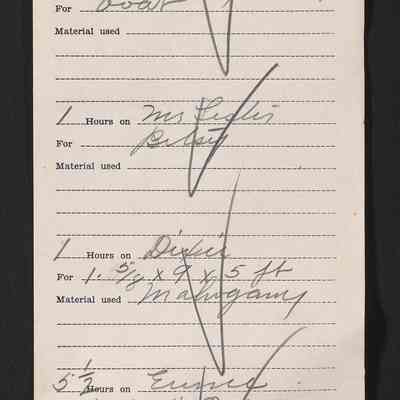 For boat
Material used
1 Hours on Mr Leslis
For Betsy
Material used
1 Hours on Dixie
For 1. 5/8 x 9 x 5 ft
Material used Mahogany
5 1/2 Hours on